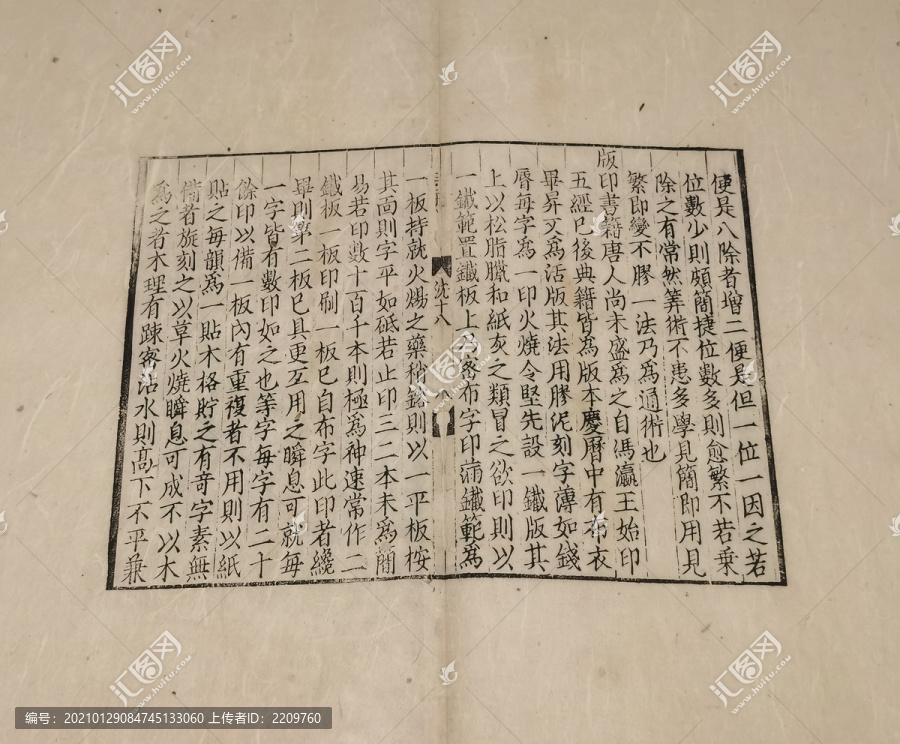 便是八除者增二便是但一位一因之若
位數少則頗簡捷位數多則愈繁不若乗
除之有常然筭術不患多學見簡即用見
繁即變不膠一法乃爲通術也
版印書籍唐人尚未盛爲之自馮瀛王始印
五經已後典籍皆爲版本慶曆中有布衣
畢昇又爲活版其法用膠泥刻字薄如錢
脣每字爲一印火燒令堅先設一鐵版其
上以松脂臘和紙灰之類冒之欲印則以
一鐵範置鐵板上乃密布字印滿鐵範爲
沈十八
一板持就火煬之藥稍鎔則以一平板桉
其面則字平如砥若止印三二本未爲簡
易若印數十百千本則極爲神速常作二
鐵板一板印刷一板已自布字此印者纔
畢則第二板已具更互用之瞬息可就每
一字皆有數印如之也等字每字有二十
餘印以備一板內有重複者不用則以紙
貼之每韻爲一貼木格貯之有奇字素無
備者旋刻之以草火燒瞬息可成不以木
爲之者木理有踈密沾水則髙下不平兼
汇图网
www.huitu.com
编号：20210129084745133060 上传者ID：2209760